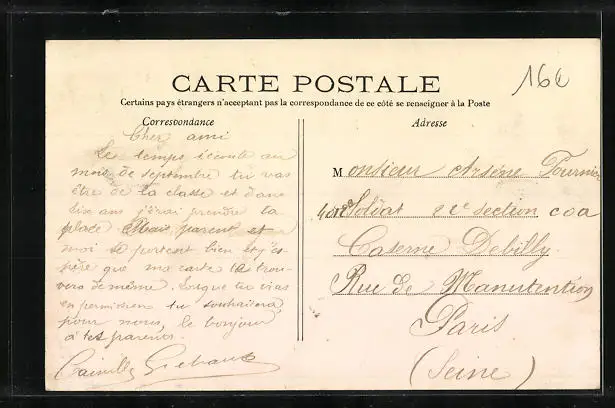 16e
CARTE POSTALE
Certains pays étrangers n'acceptent pas la correspondance de ce côté se renseigner à la Poste
Correspondance
Adresse
Cher ami
Le temps s'écoule au
mois de septembre tu vas
être de la classe et dans
dix ans j'érai prendre ta
place Mais parent et
moi se portent bien et j'es-
père que ma carte te trou-
vera de même. Lorsque tu vias
en permission tu souhaitera,
pour nous, le bonjour
à tes parents.
Camille
Monsieur Arsène Fournier
Soldat 22e section coa
Caserne Debilly
Rue de Manutention
Paris
(Seine)